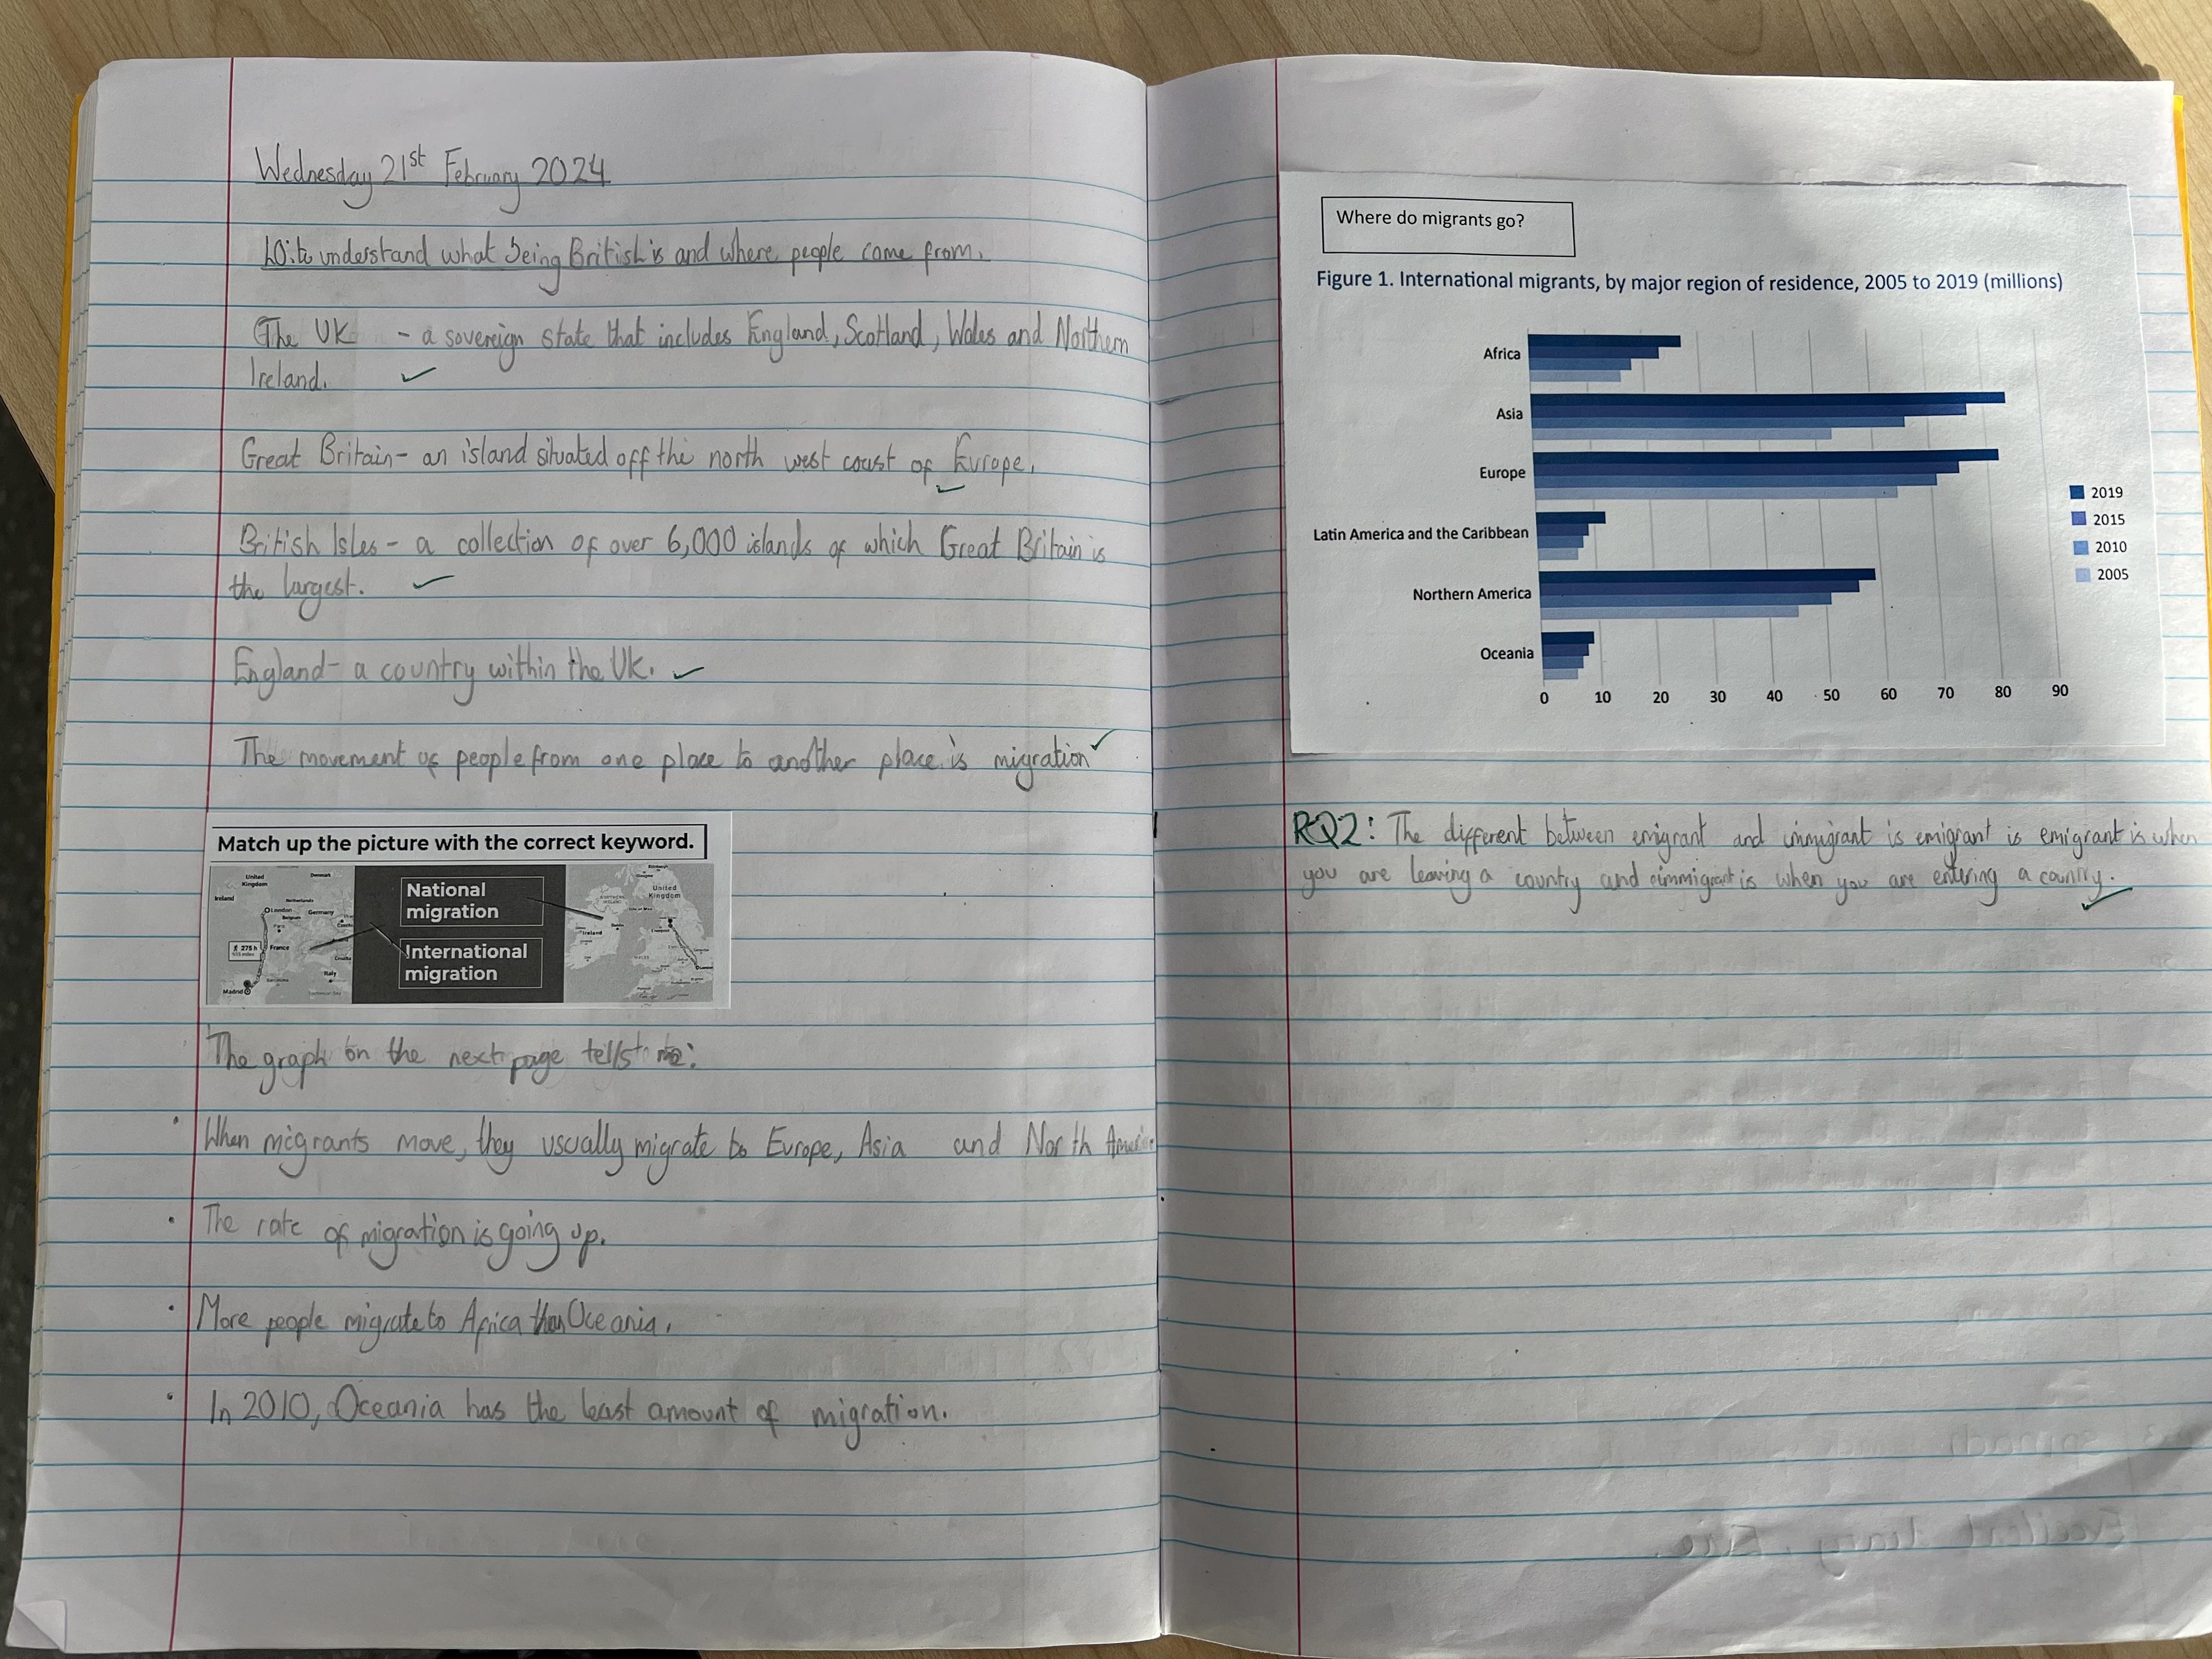 Wednesday 21st February 2024
LO: to understand what being British is and where people come from.
The UK - a sovereign state that includes England, Scotland, Wales and Northern
Ireland.
Great Britain - an island situated off the north west coast of Europe.
British Isles - a collection of over 6,000 islands of which Great Britain is
the largest.
England - a country within the UK.
The movement of people from one place to another place is migration
Match up the picture with the correct keyword.
National
migration
International
migration
United
Kingdom
Denmark
Ireland
Netherlands
London
Belgium
Germany
Paris
275 h
France
Italy
Madrid
United
Kingdom
Ireland
London
The graph on the next page tells me:
• When migrants move, they usually migrate to Europe, Asia and North
• The rate of migration is going up.
• More people migrate to Africa than Oceania.
• In 2010, Oceania has the least amount of migration.
Where do migrants go?
Figure 1. International migrants, by major region of residence, 2005 to 2019 (millions)
Africa
Asia
Europe
Latin America and the Caribbean
Northern America
Oceania
2019
2015
2010
2005
0 10 20 30 40 50 60 70 80 90
RQ2: The different between emigrant and immigrant is emigrant is emigrant is when
you are leaving a country and immigrant is when you are entering a country.